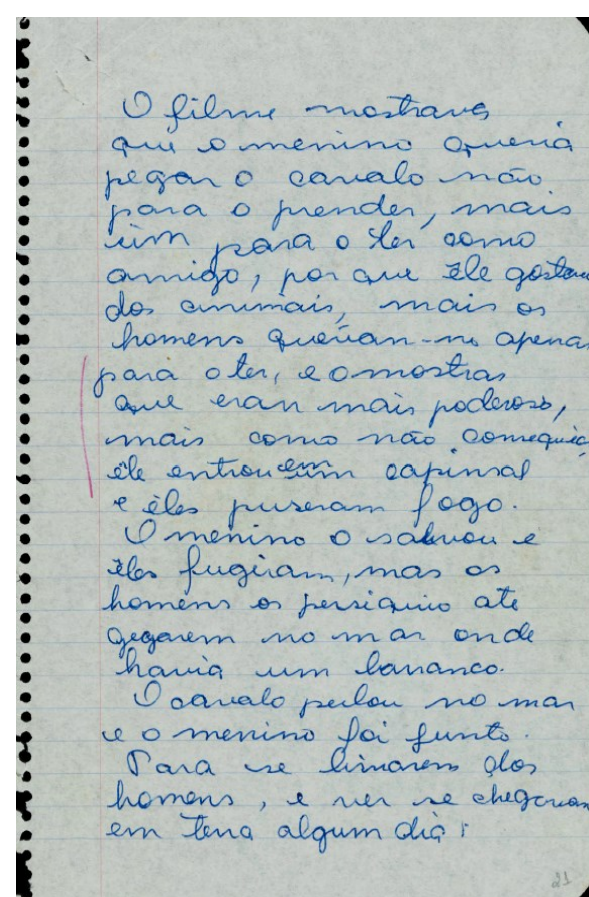 O filme mostrava
que o menino queria
pegar o cavalo não
para o prender, mais
sim para o ter como
amigo, por que êle gostav
dos animais, mais os
homens querian-no apenas
para o ter, e o mostras
que eran mais poderoso,
mais como não comseguia
êle entrou em um capinsal
e êles puseram fogo.
O menino o salvou e
êles fugiram, mas os
homens os persiquiu ate
gegarem no mar onde
havia um barranco.
O cavalo pulou no mar
e o menino foi junto.
Para se livrarem dos
homens, e ver se chegavam
em terra algum dia!
21